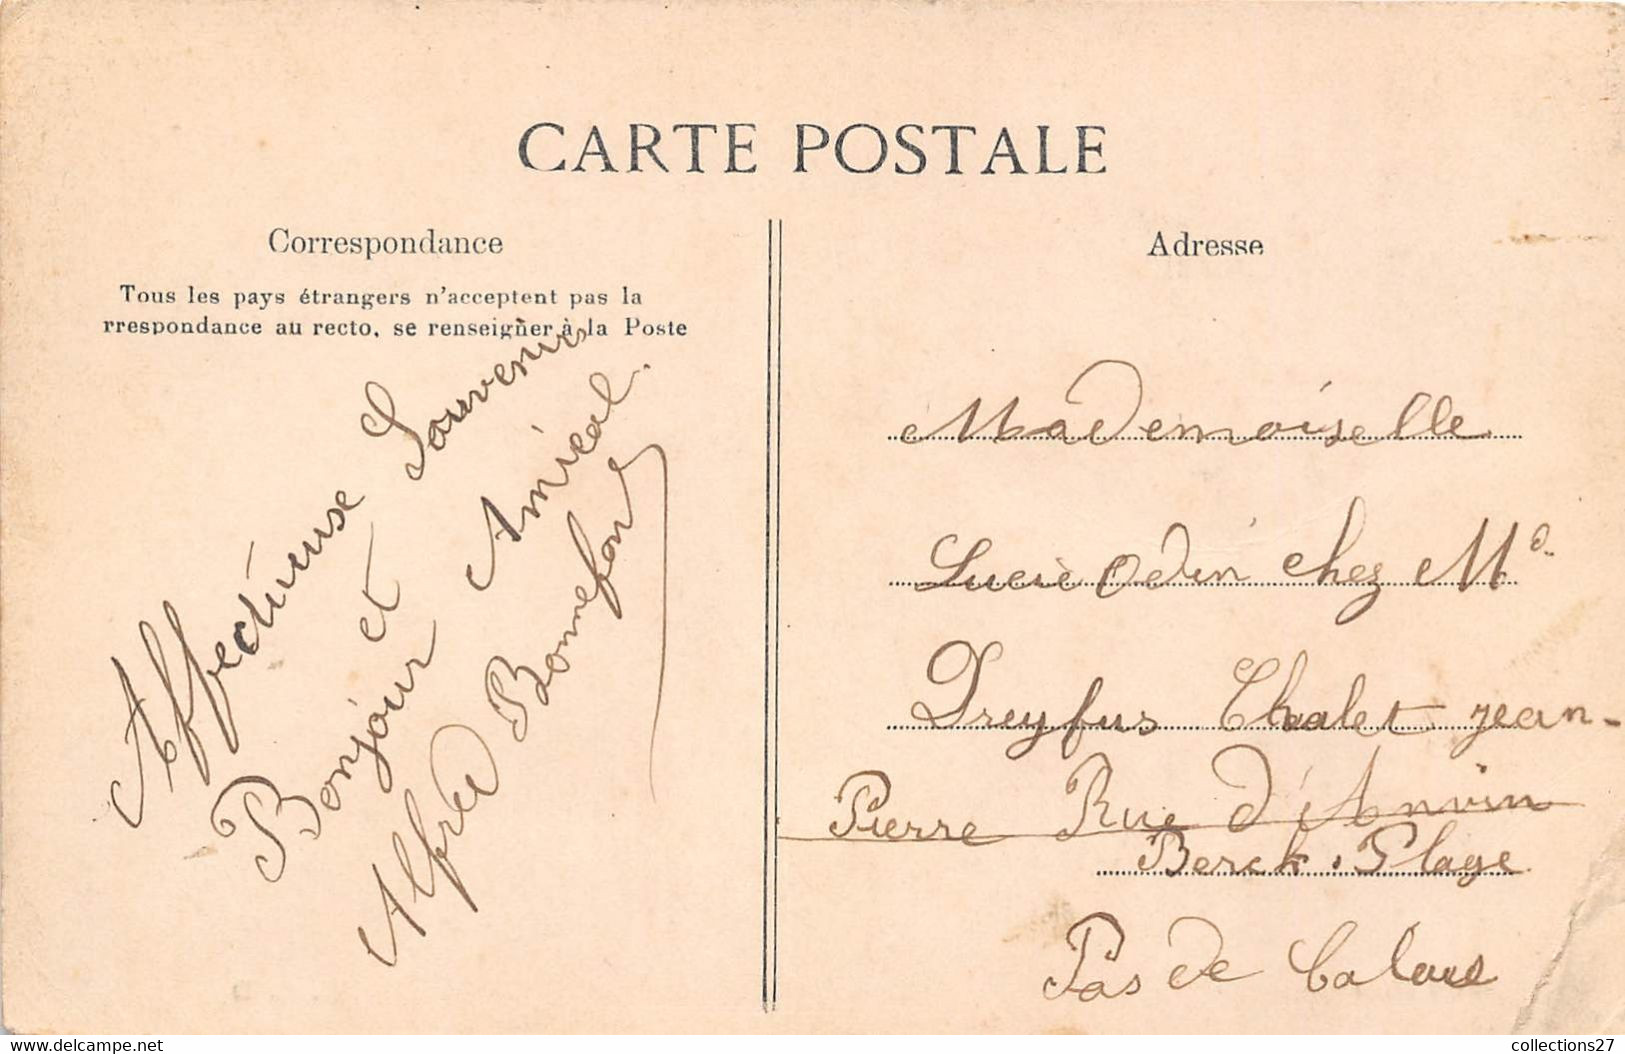 CARTE POSTALE
Correspondance
Tous les pays étrangers n'acceptent pas la
rrespondance au recto, se renseigner à la Poste
Affectueuse Souvenirs
et
Bonjour Amical.
Alfred Bonnefond
Adresse
Mademoiselle
Lucie Odin chez Md.
Dreyfus Chalet Jean-
Pierre Rue d'Anvin
Berck. Plage
Pas de Calais
collections27